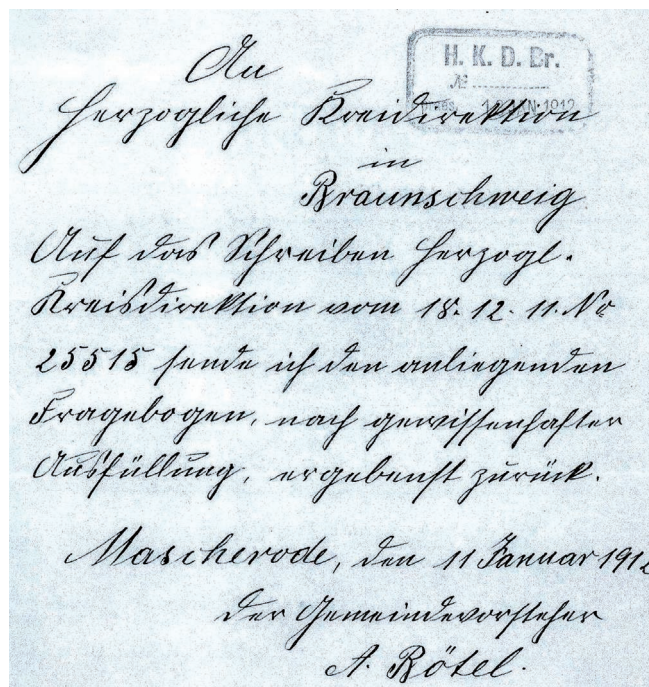 H. K. D. Br.
№
JAN. 1912
An
Herzogliche Kreisdirektion
in
Braunschweig
Auf das Schreiben Herzogl.
Kreisdirektion vom 18. 12. 11. No
25515 sende ich den anliegenden
Fragebogen, nach gewissenhafter
Ausfüllung, ergebenst zurück.
Mascherode, den 11 Januar 1912
Der Gemeindevorsteher
A. Rötel.